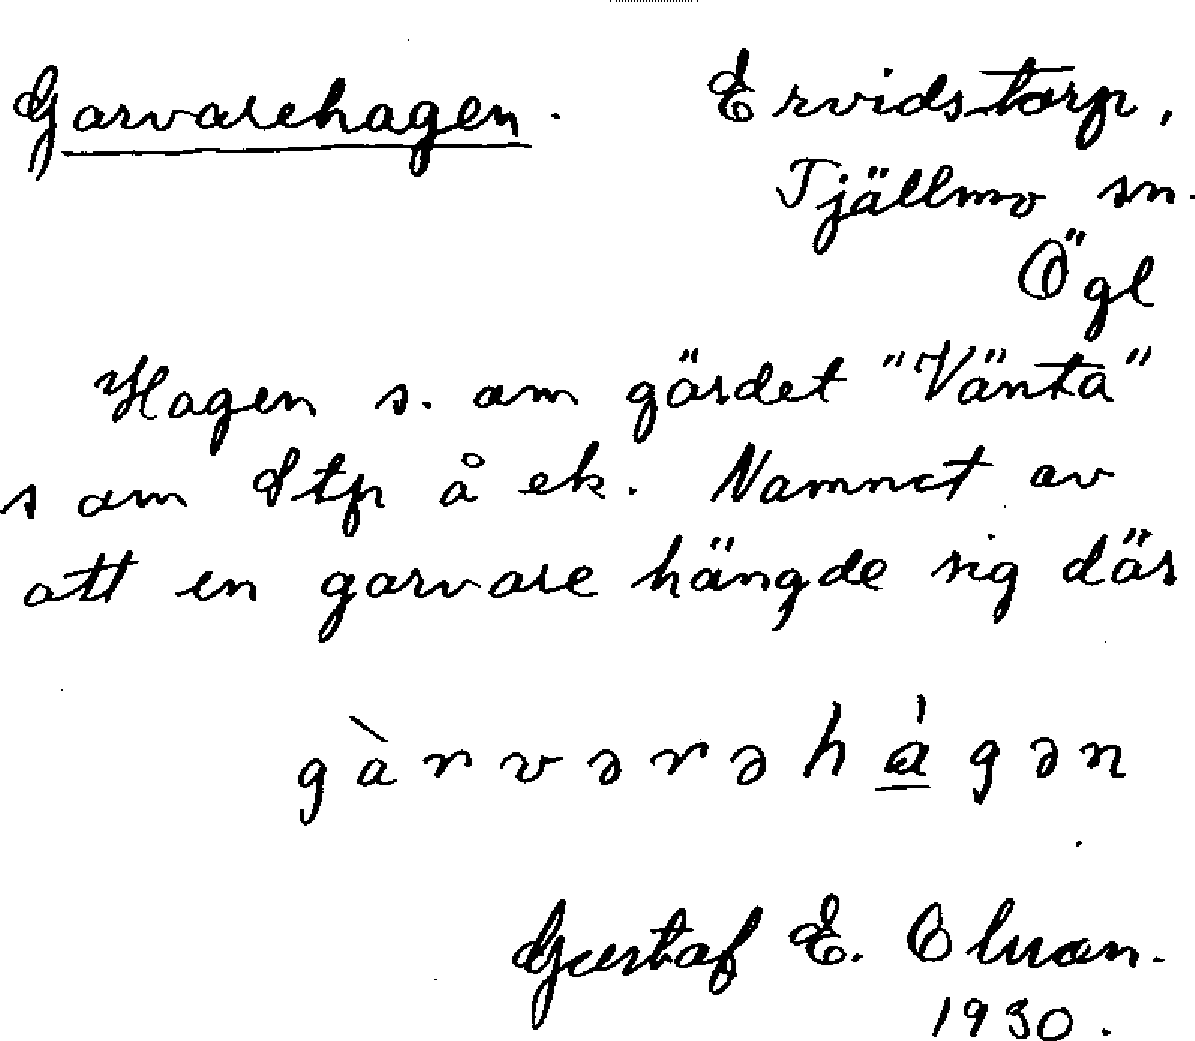 Garvarehagen. Ervidstorp,
Tjällmo sn.
Ögl
Hagen s. om gärdet "Vänta"
s om Stp å ek. Namnet av
att en garvare hängde sig där
gàrvərəhá̱gən
Gustaf E. Olson.
1930.